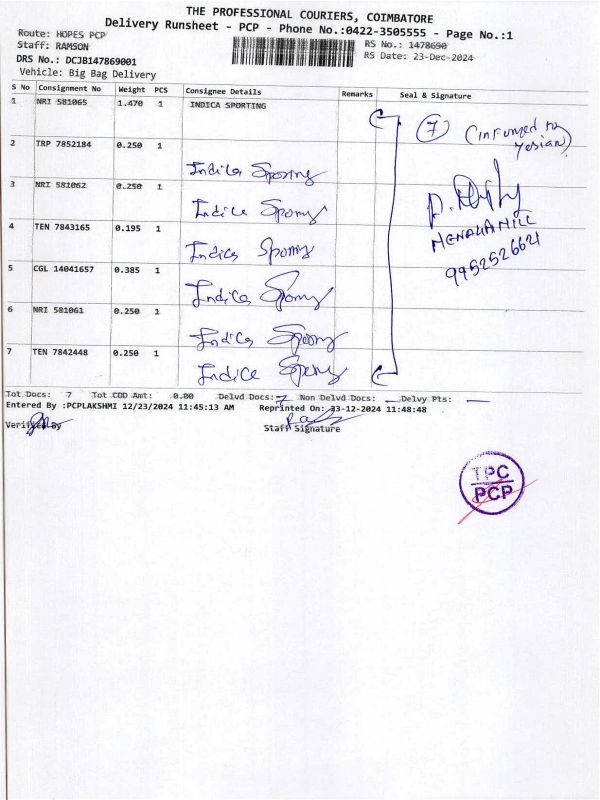 THE PROFESSIONAL COURIERS, COIMBATORE
Delivery Runsheet - PCP - Phone No.:0422-3505555 - Page No.:1
Route: HOPES PCP
RS No.: 1478690
Staff: RAMSON
RS Date: 23-Dec-2024
DRS No.: DCJB147869001
Vehicle: Big Bag Delivery
S No Consignment No Weight PCS Consignee Details Remarks Seal & Signature
1 NRI 581065 1.470 1 INDICA SPORTING
7 (informed to
2 TRP 7852184 0.250 1
Indica Sporing
3 NRI 581062 0.250 1
Indica Sporing
4 TEN 7843165 0.195 1
Indica Sporing
9952526621
5 CGL 14041657 0.385 1
Indica Sporing
6 NRI 581061 0.250 1
Indica Sporing
7 TEN 7842448 0.250 1
Indica Sporing
Tot Docs: 7 Tot COD Amt: 0.00 Delvd Docs: 7 Non Delvd Docs: — Delvy Pts: —
Entered By :PCPLAKSHMI 12/23/2024 11:45:13 AM Reprinted On: 23-12-2024 11:48:48
Verified By
Staff Signature
TPC
PCP